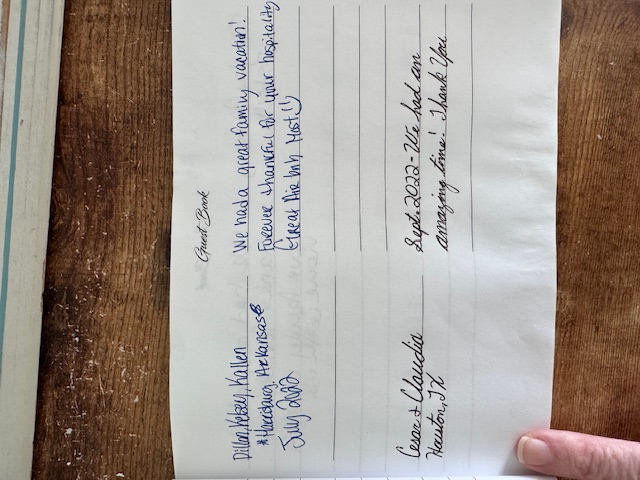 Guest Book
Dillon, Kelsey, Kallen We had a great family vacation!
*Harrisburg, Arkansas Forever thankful for your hospitality
July 2022 Great Air bnb Host!
Cesar & Claudia Sept. 2022 - We had an
Houston, TX amazing time! Thank You